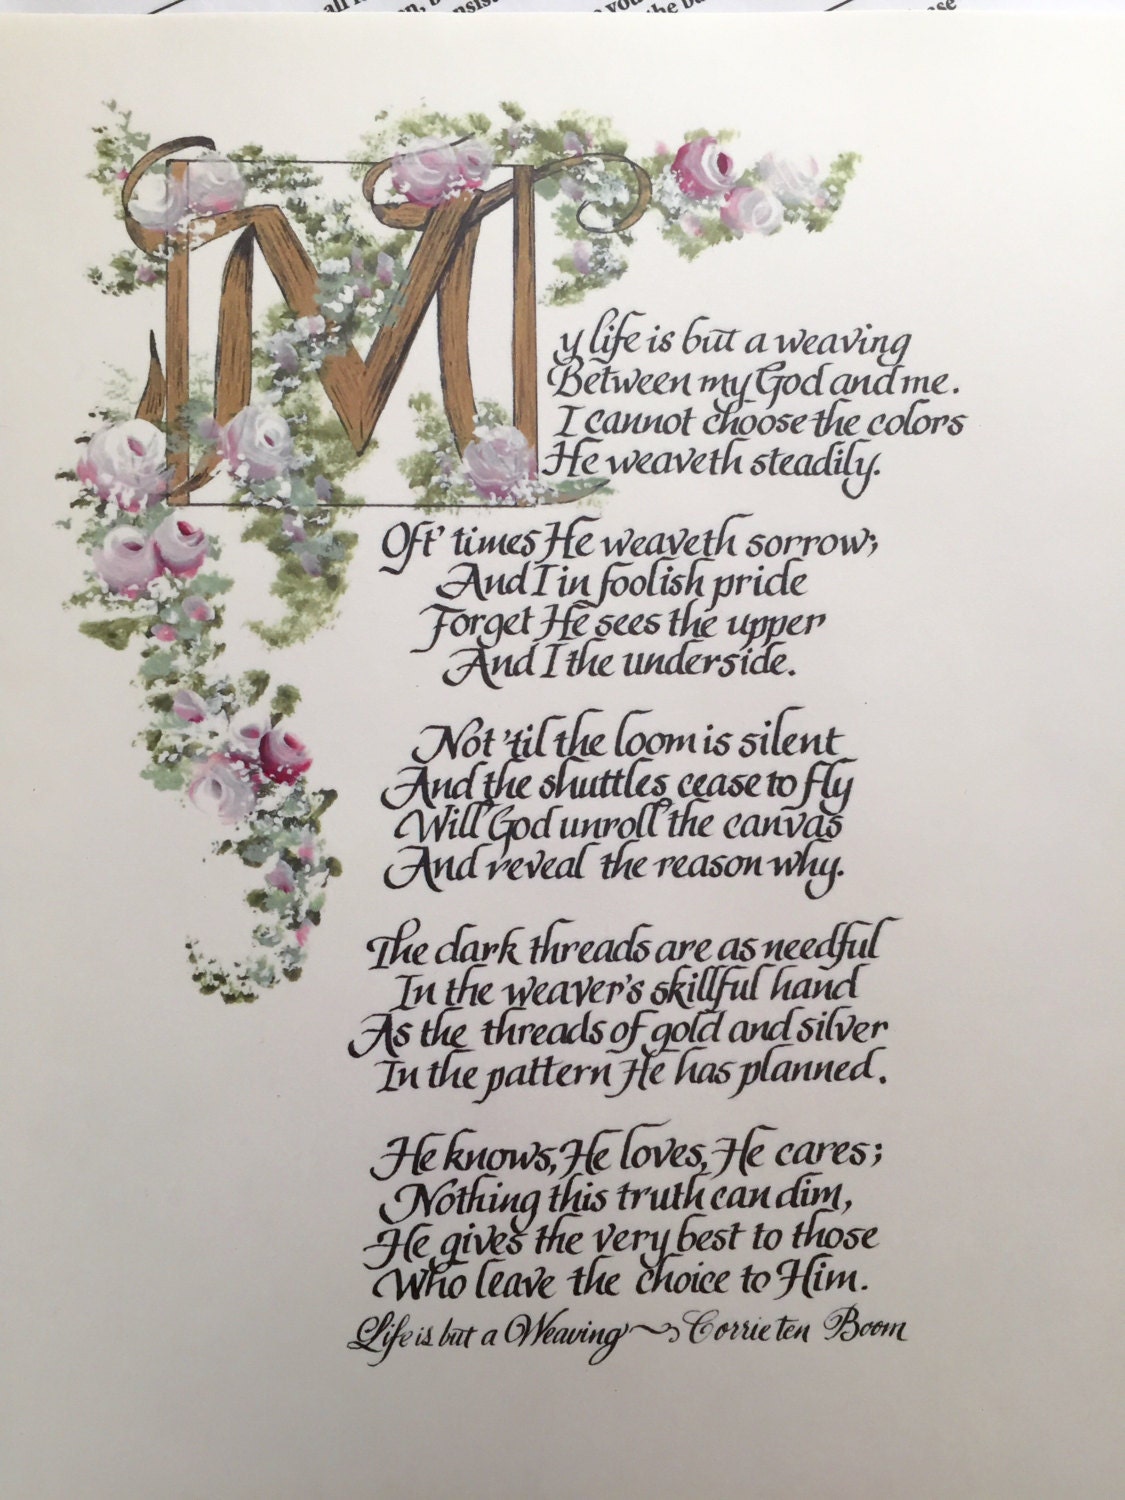 My life is but a weaving
Between my God and me.
I cannot choose the colors
He weaveth steadily.
Oft' times He weaveth sorrow;
And I in foolish pride
Forget He sees the upper
And I the underside.
Not 'til the loom is silent
And the shuttles cease to fly
Will God unroll the canvas
And reveal the reason why.
The dark threads are as needful
In the weaver's skillful hand
As the threads of gold and silver
In the pattern He has planned.
He knows, He loves, He cares;
Nothing this truth can dim,
He gives the very best to those
Who leave the choice to Him.
Life is but a Weaving ~ Corrie ten Boom